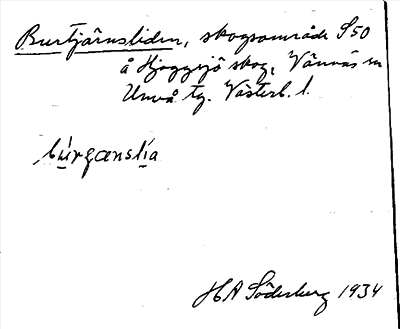 Burtjärnsliden, skogsområde S50
å Hjoggsjö skog, Vännäs sn
Umeå tg. Västerb. l.
bu̱rgænsli̱a
HA Söderburg 1934